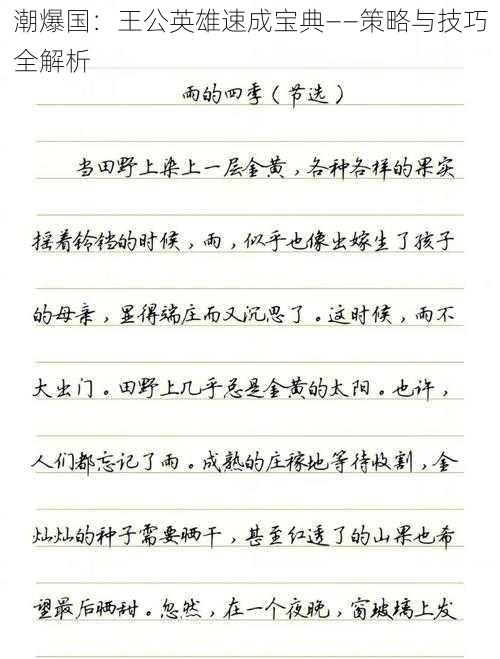 潮爆国：王公英雄速成宝典——策略与技巧
全解析
雨的四季（节选）
当田野上染上一层金黄，各种各样的果实
摇着铃铛的时候，雨，似乎也像出嫁生了孩子
的母亲，显得端庄而又沉思了。这时候，雨不
大出门。田野上几乎总是金黄的太阳。也许，
人们都忘记了雨。成熟的庄稼地等待收割，金
灿灿的种子需要晒干，甚至红透了的山果也希
望最后晒甜。忽然，在一个夜晚，窗玻璃上发